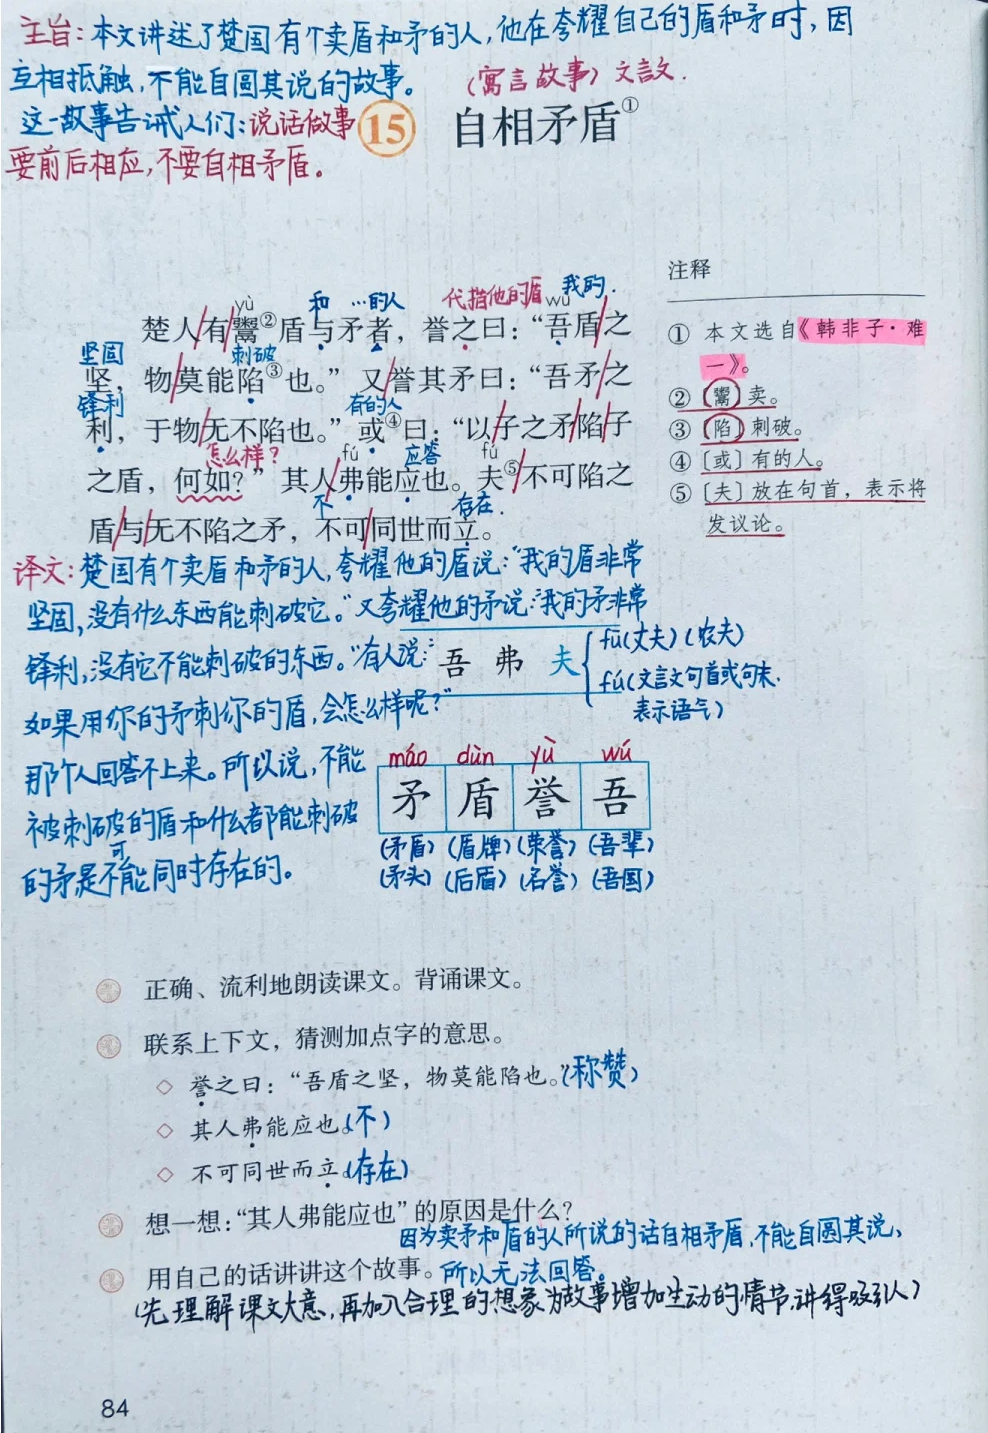 主旨：本文讲述了楚国有个卖盾和矛的人，他在夸耀自己的盾和矛时，因
互相抵触，不能自圆其说的故事。
（寓言故事）文言文.
这一故事告诫人们：说话做事
要前后相应，不要自相矛盾。
15 自相矛盾①
和 …的人 代指他的盾 我的.
yù wú
楚人/有/鬻②盾与矛者，誉/之曰：“吾盾/之
坚固 刺破
坚，物/莫能陷③也。”又/誉其矛曰：“吾矛/之
锋利 有的人
利，于物/无不陷也。”或④曰：“以/子之矛/陷/子
怎么样？ fú 应答 fú
之盾，何如？”其人/弗能应也。夫⑤/不可陷之
不 存在.
盾/与/无不陷之矛，不可/同世而立。
注释
① 本文选自《韩非子·难
一》。
② 〔鬻〕卖。
③ 〔陷〕刺破。
④ 〔或〕有的人。
⑤ 〔夫〕放在句首，表示将
发议论。
译文：楚国有个卖盾和矛的人，夸耀他的盾说：“我的盾非常
坚固，没有什么东西能刺破它。”又夸耀他的矛说：“我的矛非常
锋利，没有它不能刺破的东西。”有人说：“
如果用你的矛刺你的盾，会怎么样呢？”
那个人回答不上来。所以说，不能
被刺破的盾和什么都能刺破
的矛是不可能同时存在的。
吾 弗 夫
fū（丈夫）（农夫）
fú（文言文句首或句末.
表示语气）
máo dùn yù wú
矛 盾 誉 吾
（矛盾）（盾牌）（荣誉）（吾辈）
（矛头）（后盾）（名誉）（吾国）
正确、流利地朗读课文。背诵课文。
联系上下文，猜测加点字的意思。
◇ 誉之曰：“吾盾之坚，物莫能陷也。”（称赞）
◇ 其人弗能应也。（不）
◇ 不可同世而立。（存在）
想一想：“其人弗能应也”的原因是什么？
因为卖矛和盾的人所说的话自相矛盾，不能自圆其说，
用自己的话讲讲这个故事。所以无法回答。
（先理解课文大意，再加入合理的想象为故事增加生动的情节，讲得吸引人）
84